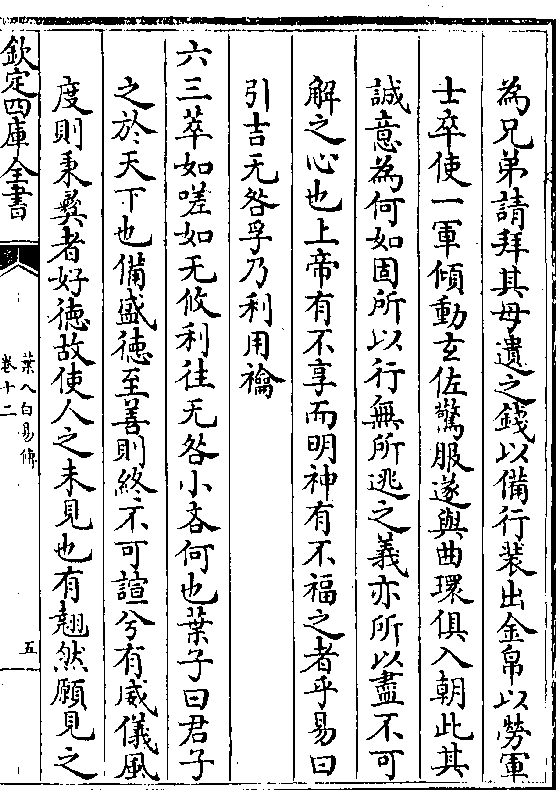 為兄弟請拜其母遺之錢以備行裝出金帛以勞軍
士卒使一軍傾動玄佐驚服遂與曲環俱入朝此其
誠意為何如固所以行無所逃之義亦所以盡不可
解之心也上帝有不享而明神有不福之者乎易曰
引吉无咎孚乃利用禴
六三萃如嗟如无攸利往无咎小吝何也葉子曰君子
之於天下也備盛德至善則終不可諠兮有威儀風
度則秉彝者好德故使人之未見也有翹然願見之
欽定四庫全書
葉八白易傳
卷十二
五